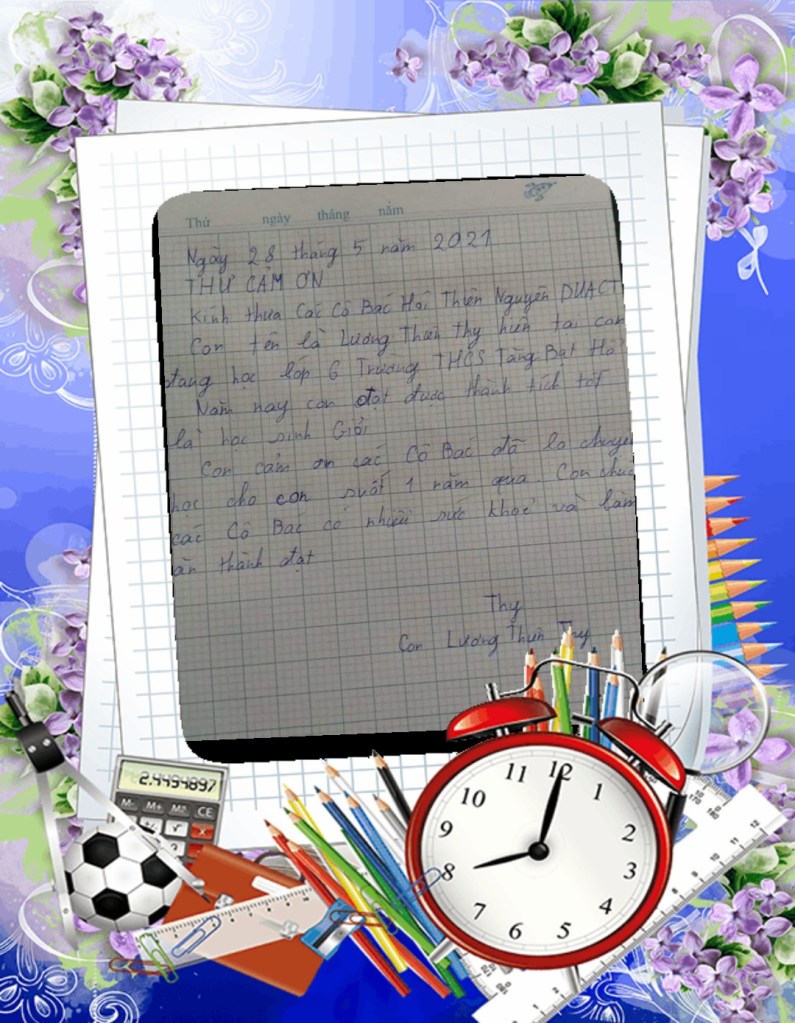 Thứ ngày tháng năm
Ngày 28 tháng 5 năm 2021
THƯ CẢM ƠN
Kính thưa Các Cô Bác Hội Thiện Nguyện DUACT
Con tên là Lương Thiên Thy hiện tại con
đang học lớp 6 Trường THCS Tăng Bạt Hổ
Năm nay con đạt được thành tích tốt
là học sinh Giỏi
Con cảm ơn các Cô Bác đã lo chuyện
học cho con suốt 1 năm qua. Con chúc
các Cô Bác có nhiều sức khoẻ và làm
ăn thành đạt
Thy
Con Lương Thiên Thy
2.4494897
M- M+ M= CE
11 12 1
10 2
9 3
8 4
7 6 5